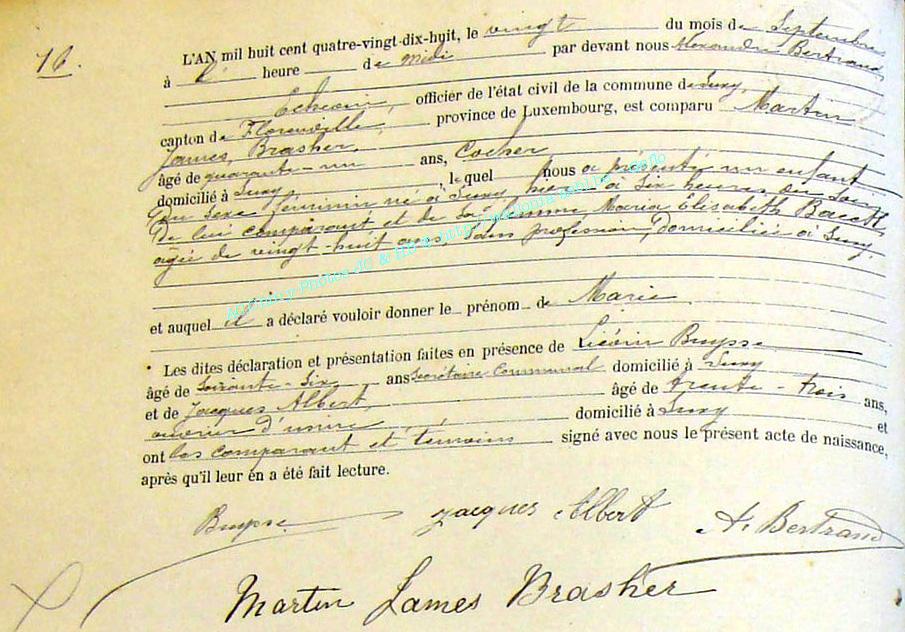 16.
L'AN mil huit cent quatre-vingt-dix-huit, le vingt du mois de Septembre
à l' heure de midi par devant nous Alexandre Bertrand,
Echevin, officier de l'état civil de la commune de Suxy,
canton de Florenville, province de Luxembourg, est comparu Martin
James Brasher,
âgé de quarante-un ans, Cocher
domicilié à Suxy, lequel nous a présenté un enfant
du sexe féminin né à Suxy hier à six heures du soir
de lui comparant et de sa femme Maria Élisabeth
agée de vingt-huit ans, sans profession, domiciliée à Suxy.
et auquel il a déclaré vouloir donner le prénom de Marie
Les dites déclaration et présentation faites en présence de Liévin Buysse
âgé de Soixante-Six ans Secrétaire Communal domicilié à Suxy
et de Jacques Albert, âgé de trente-trois ans,
ouvrier d'usine domicilié à Suxy et
ont les comparant et témoins signé avec nous le présent acte de naissance,
après qu'il leur en a été fait lecture.
Buysse Jacques Albert A. Bertrand
Martin James Brasher